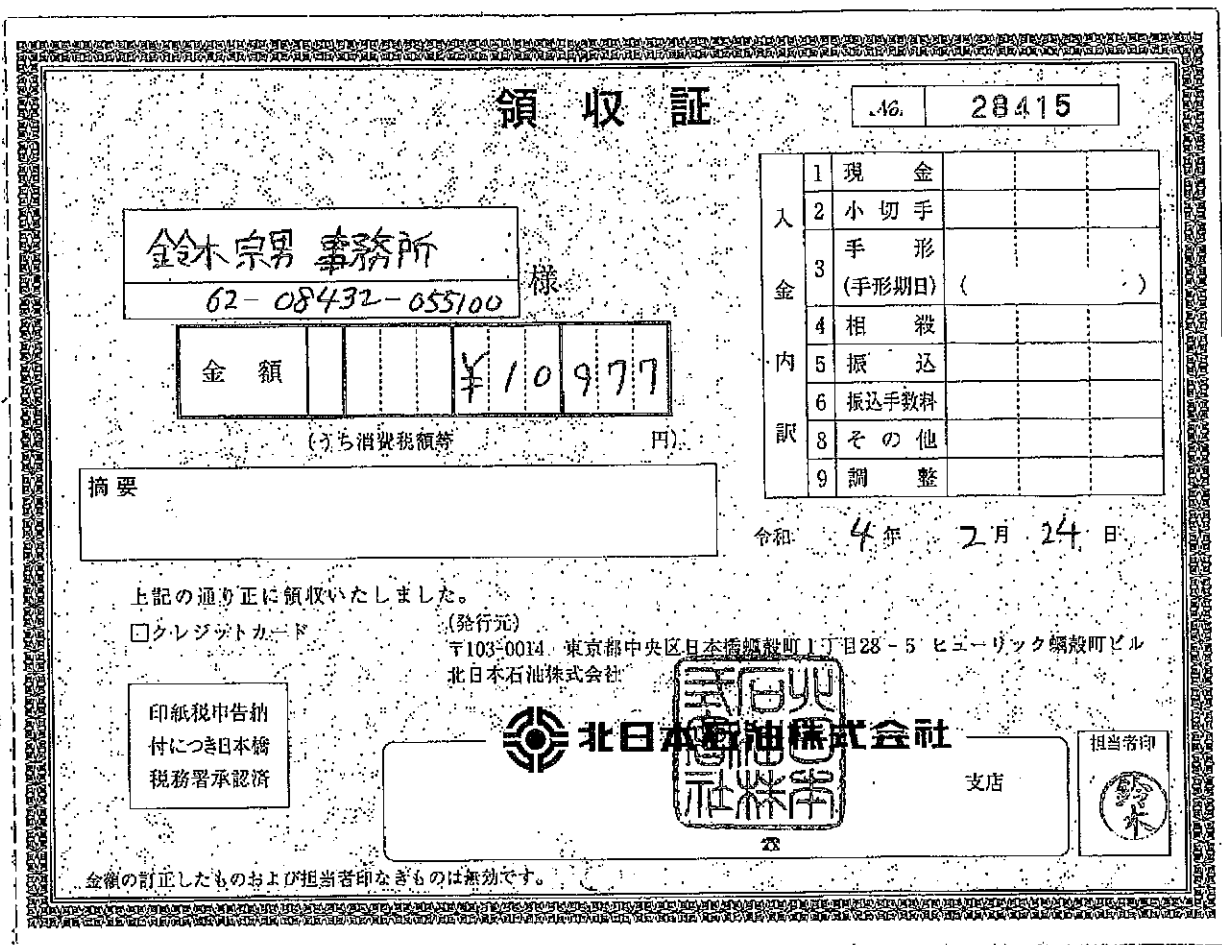 領収証
No. 28415
鈴木宗男 事務所
62-08432-055100
様
金額 ¥10977
(うち消費税額等 円)
摘要
入金内訳
1 現金
2 小切手
3 手形
(手形期日) ( )
4 相殺
5 振込
6 振込手数料
8 その他
9 調整
令和 4年 2月 24日
上記の通り正に領収いたしました。
□クレジットカード
(発行元)
〒103-0014 東京都中央区日本橋蠣殻町1丁目28-5 ヒューリック蠣殻町ビル
北日本石油株式会社
印紙税申告納
付につき日本橋
税務署承認済
北日本石油株式会社
北日本石油株式会社
支店
☎
担当者印
鈴木
金額の訂正したものおよび担当者印なきものは無効です。